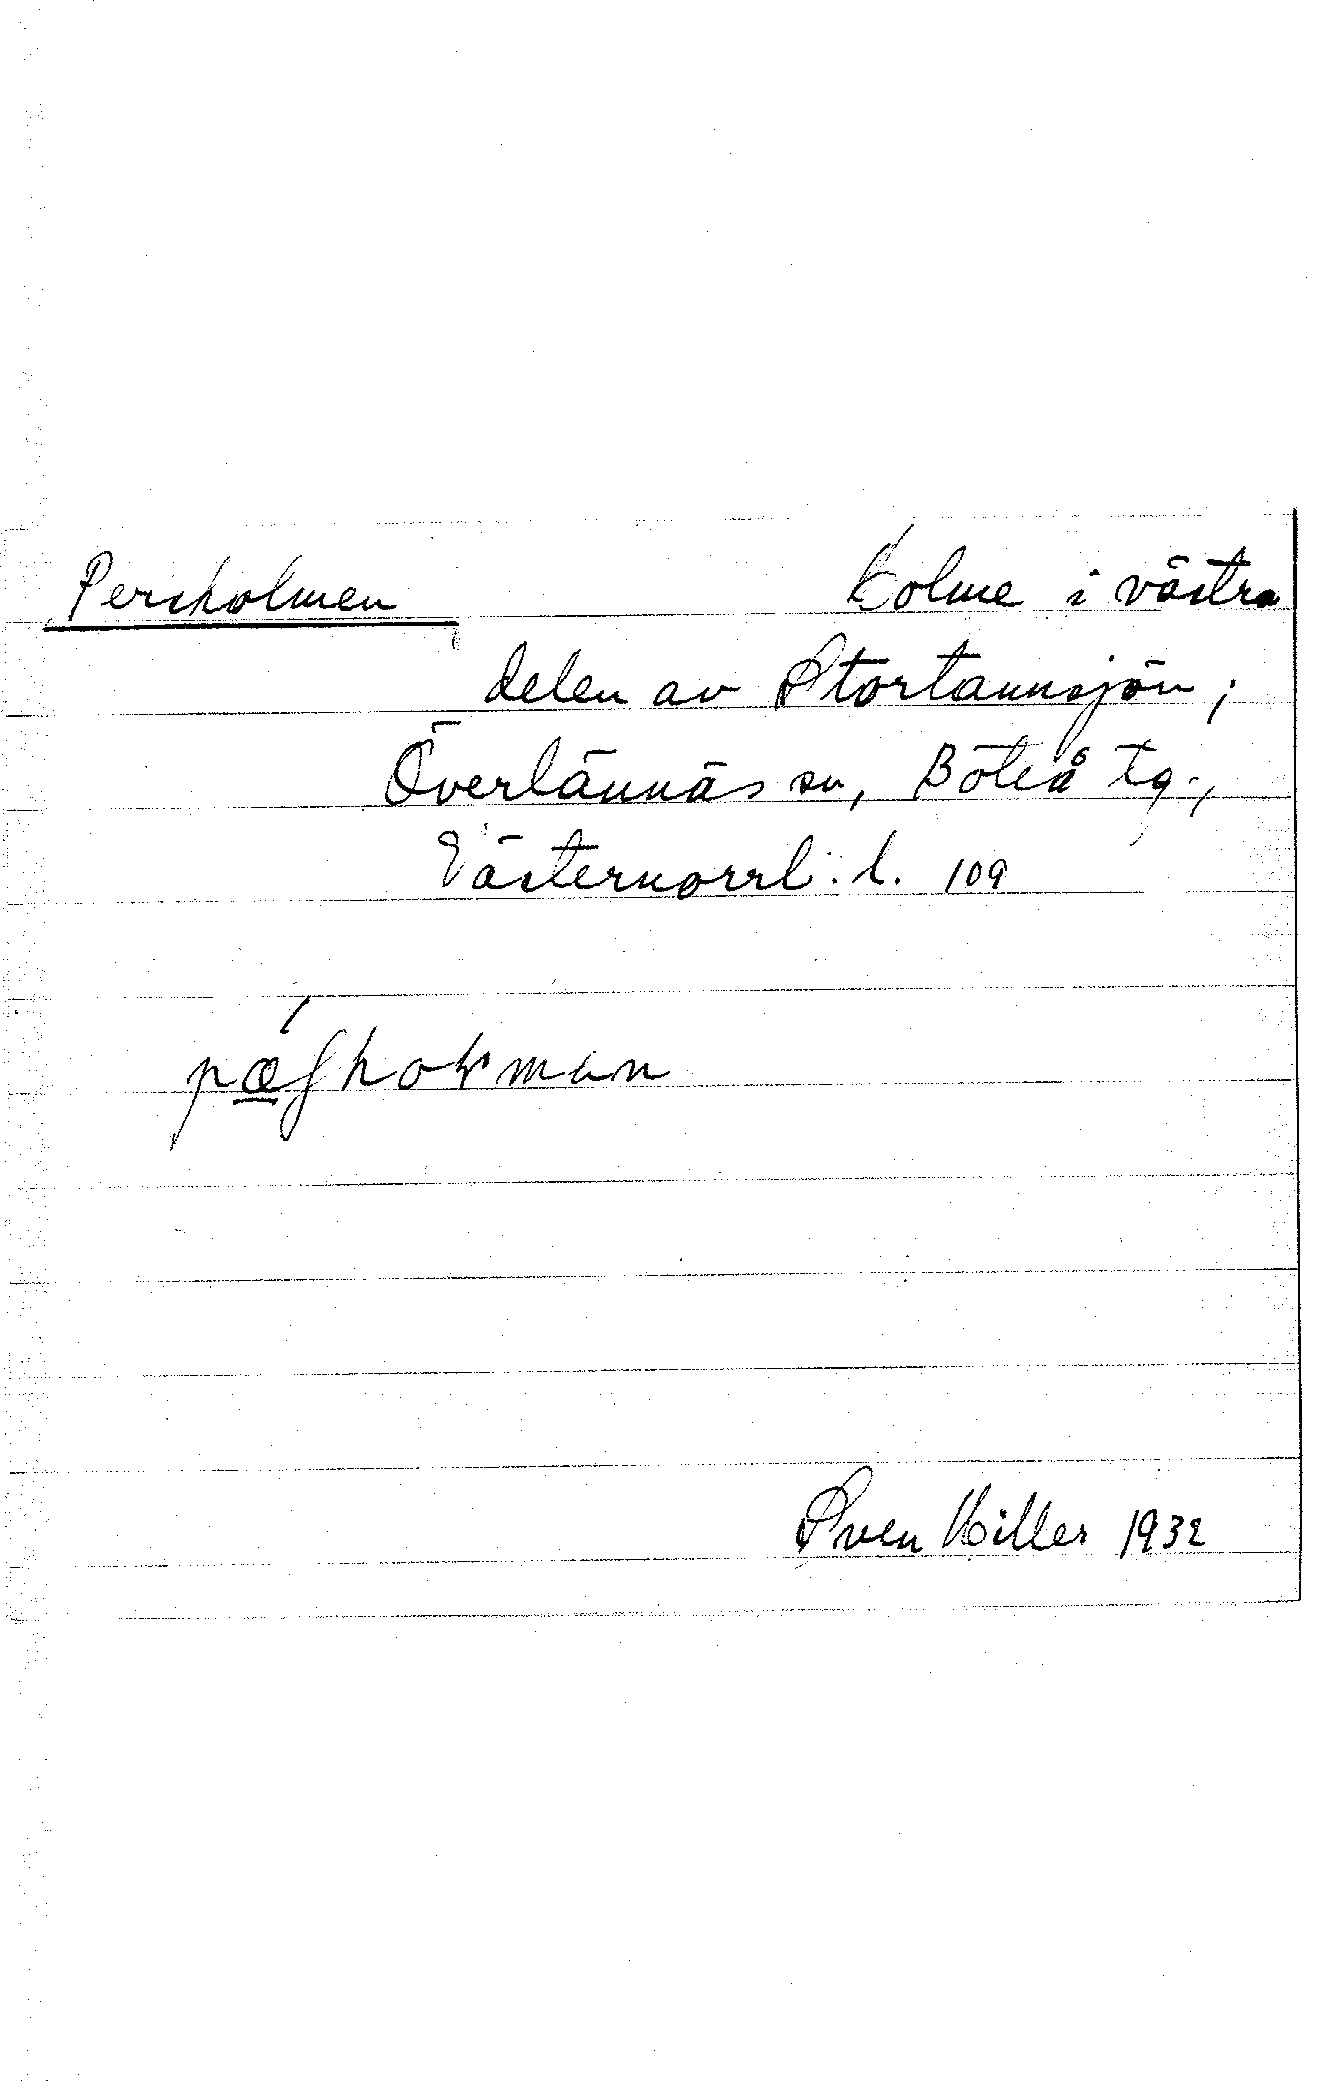 Persholmen Holme i västra
delen av Stortannsjön;
Överlännäs sn, Boteå tg.,
Västernorrl. l. 109
Sven Hiller 1932